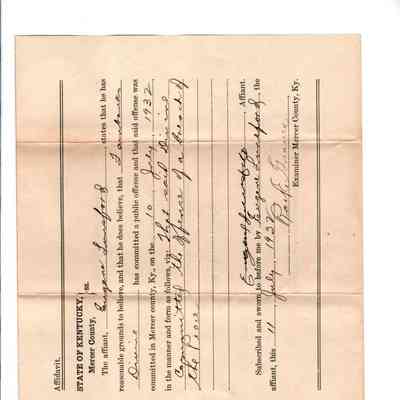 Affidavit.
STATE OF KENTUCKY, } ss.
Mercer County,
The affiant, Eugene Lunsford states that he has
reasonable grounds to believe, and that he does believe, that
Divine has committed a public offense and that said offense was
committed in Mercer county, Ky., on the 10 July 1932
in the manner and form as follows, viz: That said Divine
Committed the offence of a breach of
the Peace
Eugene Lunsford Affiant.
Subscribed and sworn to before me by Eugene Lunsford, the
affiant, this 11 July, 1932
Examiner Mercer County, Ky.